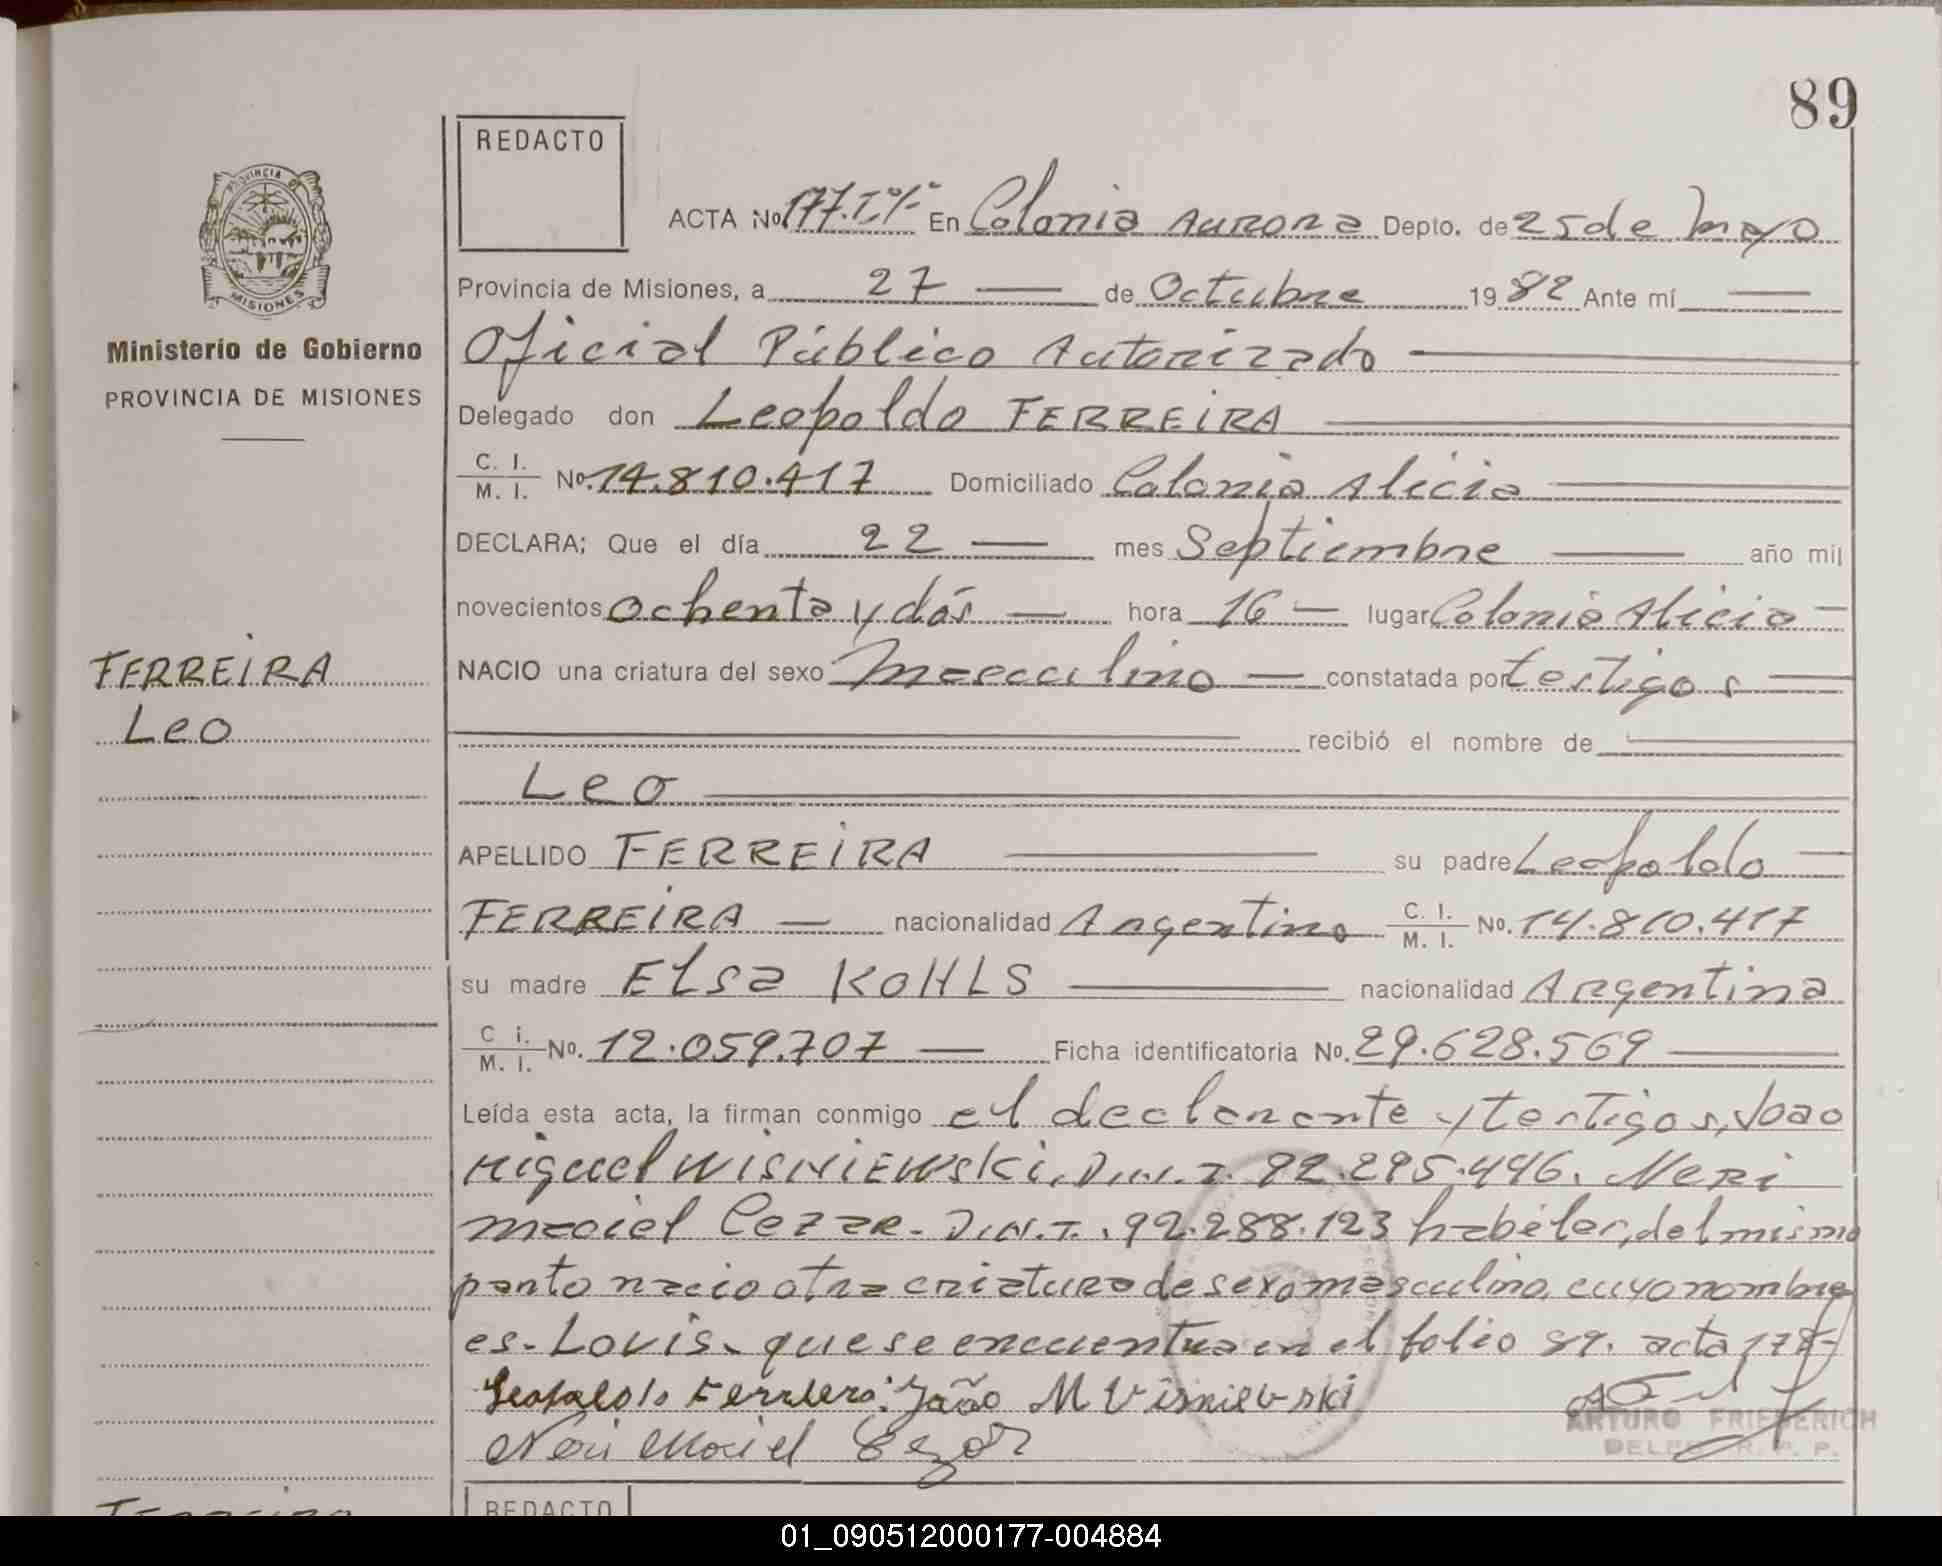 89
REDACTO
PROVINCIA DE
MISIONES
Ministerio de Gobierno
PROVINCIA DE MISIONES
ACTA No. 177. En Colonia AURORA Depto. de 25 de Mayo
Provincia de Misiones, a 27 — de Octubre 1982 Ante mí —
Oficial Público Autorizado —
Delegado don Leopoldo FERREIRA —
C. I. / M. I. No. 14.810.417 Domiciliado Colonia Alicia —
DECLARA; Que el día 22 — mes Septiembre — año mil
novecientos ochenta y dós — hora 16 — lugar Colonia Alicia —
FERREIRA
Leo
NACIO una criatura del sexo Masculino — constatada por testigos —
— recibió el nombre de —
Leo —
APELLIDO FERREIRA — su padre Leopoldo —
FERREIRA — nacionalidad Argentino C. I. / M. I. No. 14.810.417
su madre ELSa KOHLS — nacionalidad Argentina
C i. / M. I. No. 12.059.707 — Ficha identificatoria No. 29.628.569 —
Leída esta acta, la firman conmigo el declarante y testigos, Joao
Miguel WISNIEWSKi, D.N.I. 92.295.446. NERi
Maciel CezaR - D.N.I. 92.288.123 habéles, del mismo
parto nacio otra criatura de sexo masculino, cuyo nombre
es - Lovis - que se encuentra en el folio 89. acta 178-
Leopoldo Ferrera João M Visnievski
Neri Maciel Cezar
ARTURO FRIEDERICH
DELEG. R. P. P.
REDACTO
FERREIRA
01_090512000177-004884